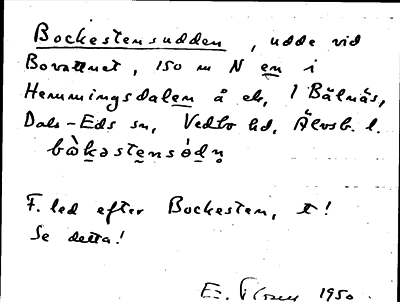 Bockestensudden, udde vid
Bovattnet, 150 m N em i
Hemmingsdalen å ek, 1 Bälnäs,
Dals-Eds sn, Vedbo hd, Älvsb. l.
bòkəstensódn̥
F. led efter Bockesten, t!
Se detta!
1950